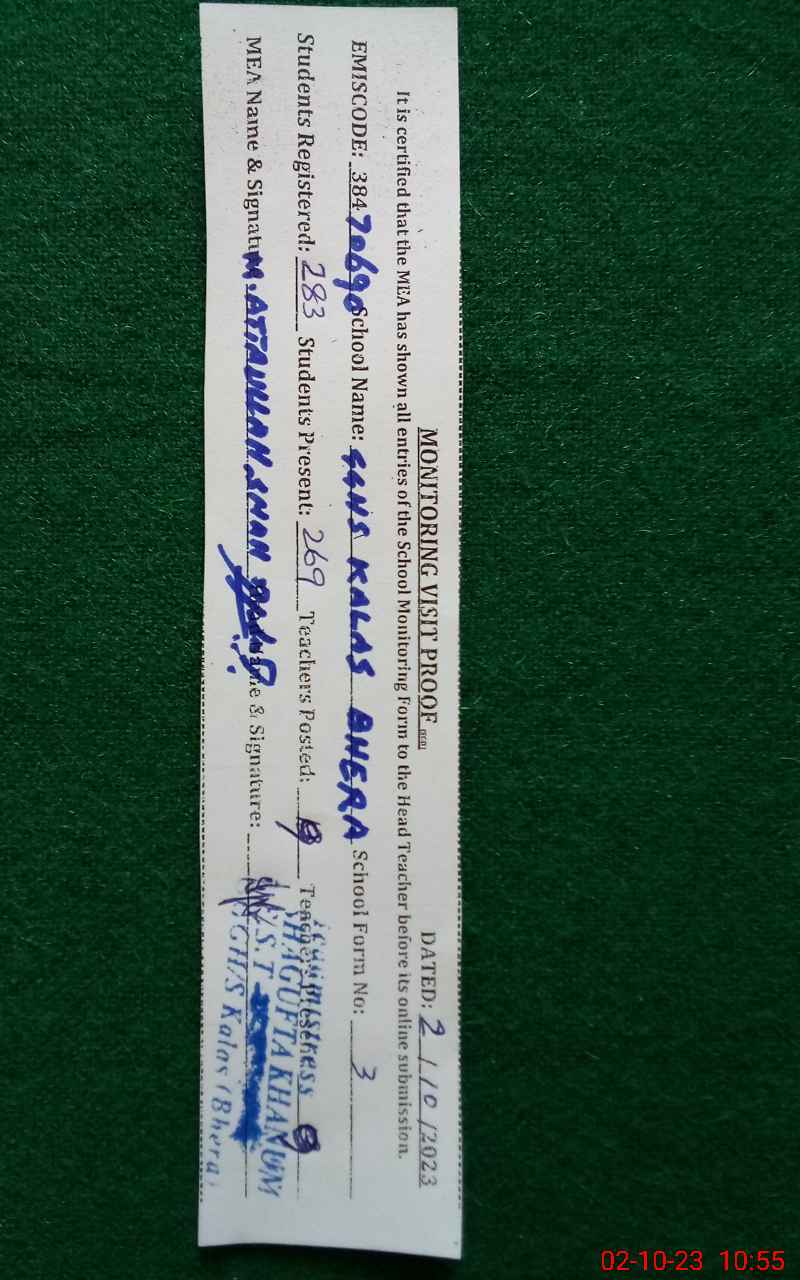 MONITORING VISIT PROOF
DATED: 2/10/2023
It is certified that the MEA has shown all entries of the School Monitoring Form to the Head Teacher before its online submission.
EMISCODE: 38470690 School Name: GGHS KALAS BHERA School Form No: 3
Students Registered: 283 Students Present: 269 Teachers Posted: Teachers Present
MEA Name & Signatu M. ATTAULLAH SHAH & Signature:
SHAGUFTA KHANUM
S.S.T
GH/S Kalas (Bhera)
02-10-23 10:55